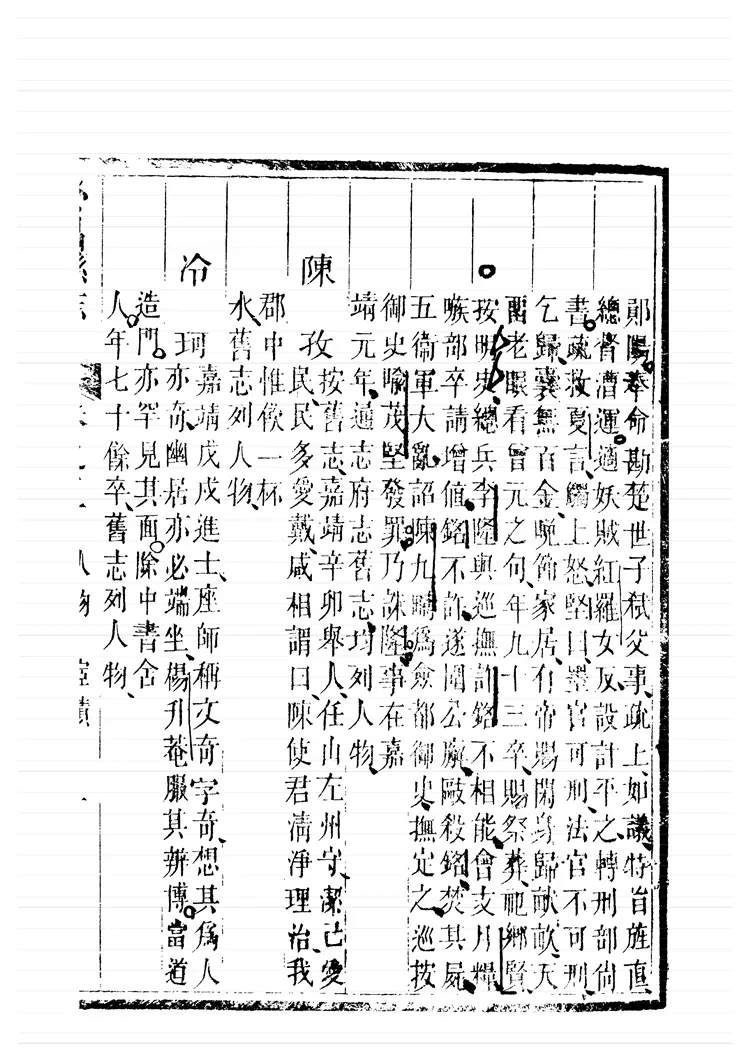 鄖陽奉命勘楚世子獄父事疏上如議特旨旌直
總督漕運適妖賊紅羅女反設計平之轉刑部尙
書疏救夏言觸上怒堅曰墨官可刑法官不可刑
乞歸囊無百金晩節家居有帝賜閑身歸畎畝天
留老眼看曾元之句年九十三卒賜祭葬祀鄕賢
按明史總兵李隆與巡撫許銘不相能會支月糧
嗾部卒請增値銘不許遂圍公廨毆殺銘焚其屍
五衞軍大亂詔陳九疇爲僉都御史撫定之巡按
御史喻茂堅發罪乃誅隆事在嘉
靖元年通志府志舊志均列人物
陳孜按舊志嘉靖辛卯舉人任山左州守潔己愛
民民多愛戴咸相謂曰陳使君淸淨理治我
郡中惟飲一杯
水舊志列人物
冷珂嘉靖戊戌進士座師稱文奇字奇想其爲人
亦奇幽居亦必端坐楊升菴服其辨博當道
造門亦罕見其面除中書舍
人年七十餘卒舊志列人物
人物